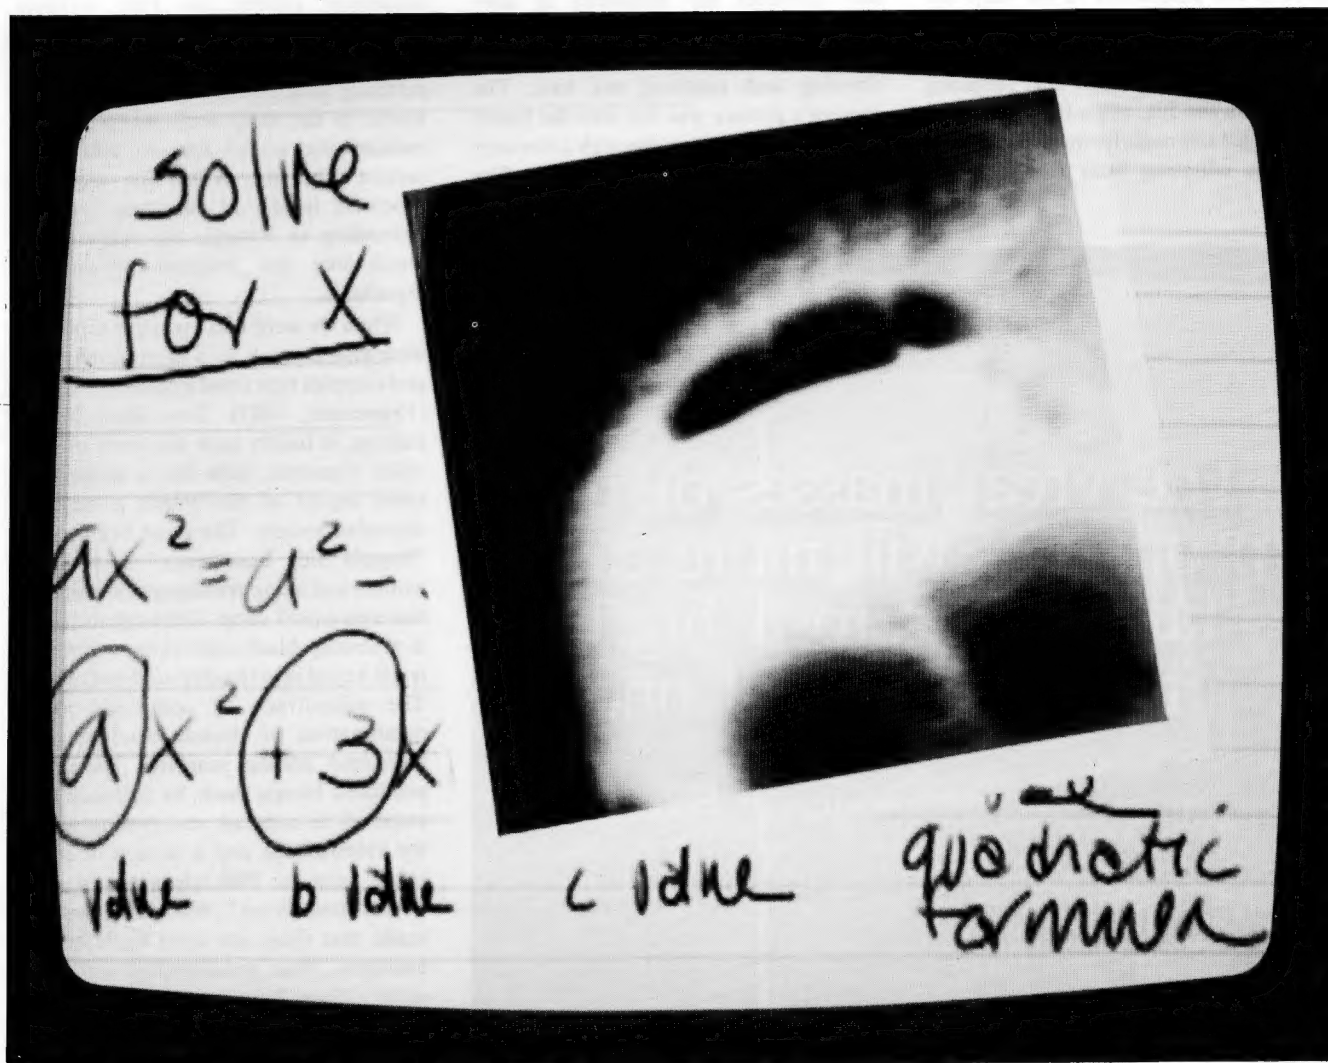 solve
for x
ax² = a² - .
ax² + 3x
value b value c value
quadratic
formula